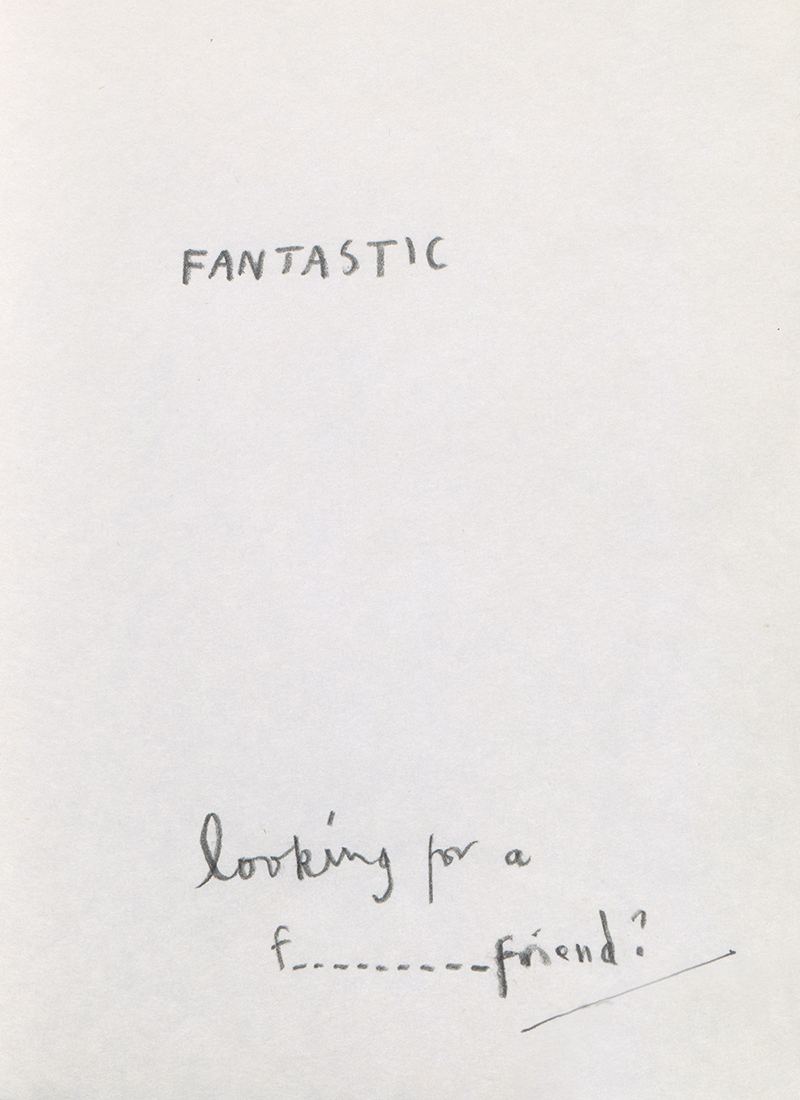 FANTASTIC
looking for a
f----------friend?